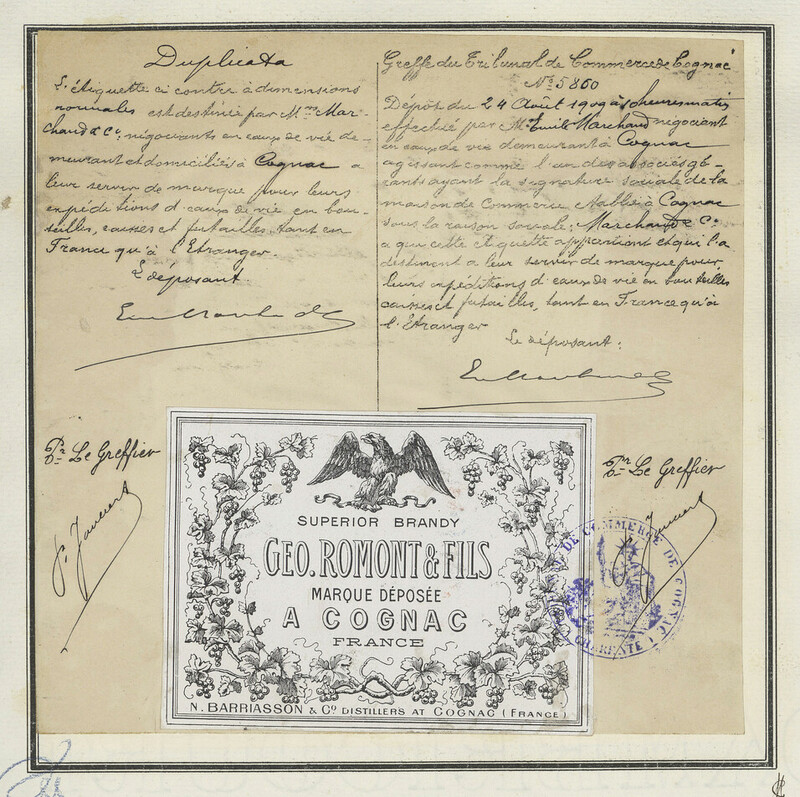 Duplicata
L'étiquette ci contre à dimensions
normales est destinée par Mrs Mar-
chand & Co, négociants en eaux de vie de-
meurant et domiciliés à Cognac a
leur servir de marque pour leurs
expéditions d'eaux de vie en bou-
teilles, caisses et futailles, tant en
France qu'à l'Etranger.
Le déposant.
Greffe du Tribunal de Commerce de Cognac
No 5860
Dépôt du 24 Août 1909 à 8 heures matin
effectué par M. Emile Marchand négociant
en eaux de vie demeurant à Cognac
agissant comme l'un des associés gé-
rants ayant la signature sociale de la
maison de Commerce etablie à Cognac
sous la raison sociale: Marchand & Co
a qui cette etiquette appartient et qui l'a
destinent a leur servir de marque pour
leurs expéditions d'eaux de vie en bouteilles
caisses et futailles, tant en France qu'à
l'Etranger
Le déposant:
Pr Le Greffier
Pr Le Greffier
SUPERIOR BRANDY
GEO. ROMONT & FILS
MARQUE DÉPOSÉE
A COGNAC
FRANCE
N. BARRIASSON & Co DISTILLERS AT COGNAC (FRANCE)
DE COMMERCE DE COGNAC
CHARENTE